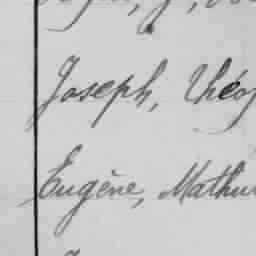 Joseph, Théo
Eugène, Mathu